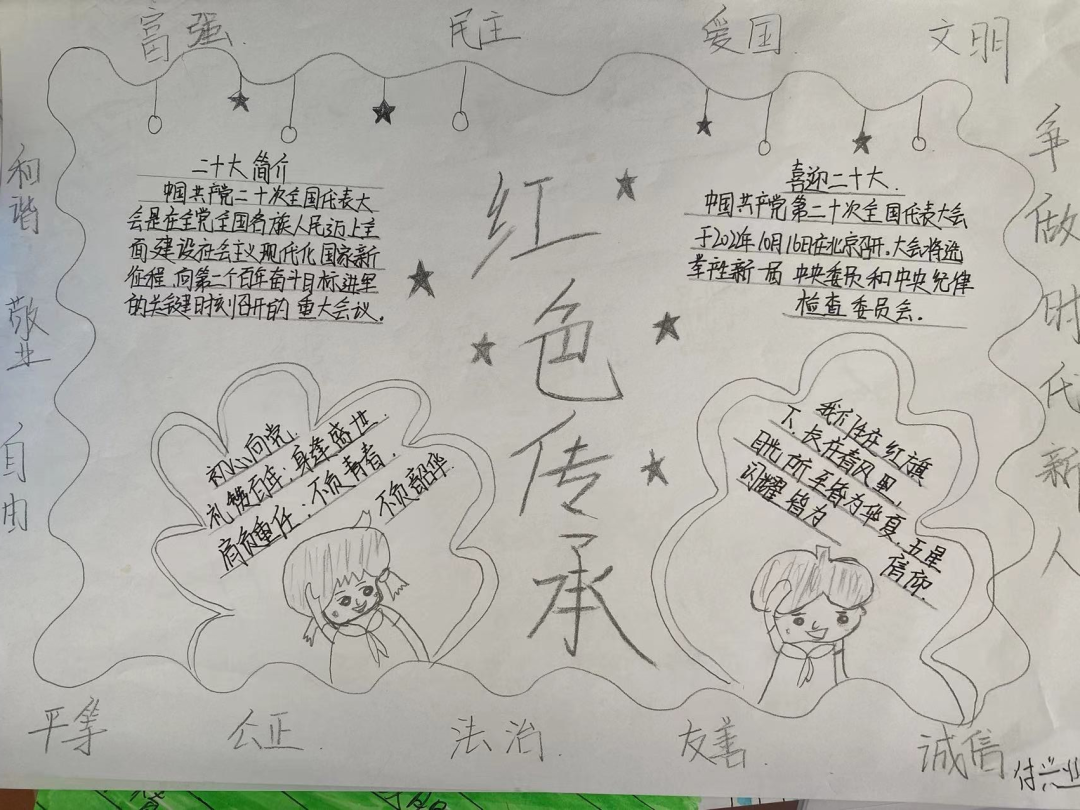 富强
民主
爱国
文明
和谐
敬业
自由
二十大简介
中国共产党二十次全国代表大
会是在全党全国各族人民迈上全
面建设社会主义现代化国家新
征程,向第二个百年奋斗目标进军
的关键时刻召开的重大会议.
红色传承
喜迎二十大.
中国共产党第二十次全国代表大会
于2022年10月16日在北京召开.大会将选
举产生新一届中央委员和中央纪律
检查委员会.
初心向党.
礼赞百年:身逢盛世.
肩负重任:不负青春.
不负韶华.
我们生在红旗
下,长在春风里,
目光所至皆为华夏.五星
闪耀皆为
信仰.
争做时代新人
平等
公正.
法治.
友善
诚信
付兴业